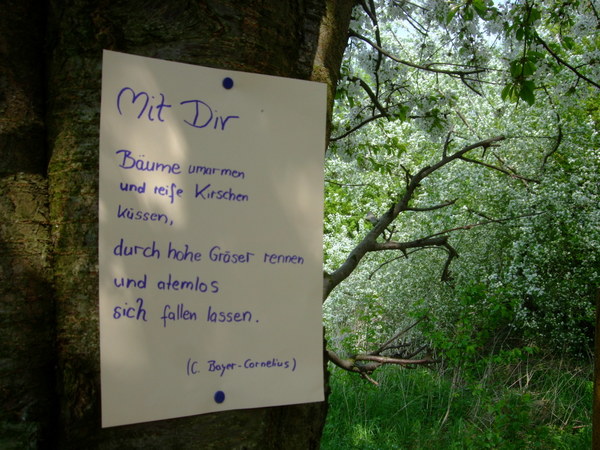 Mit Dir
Bäume umarmen
und reife Kirschen
küssen,
durch hohe Gräser rennen
und atemlos
sich fallen lassen.
(C. Bayer-Cornelius)